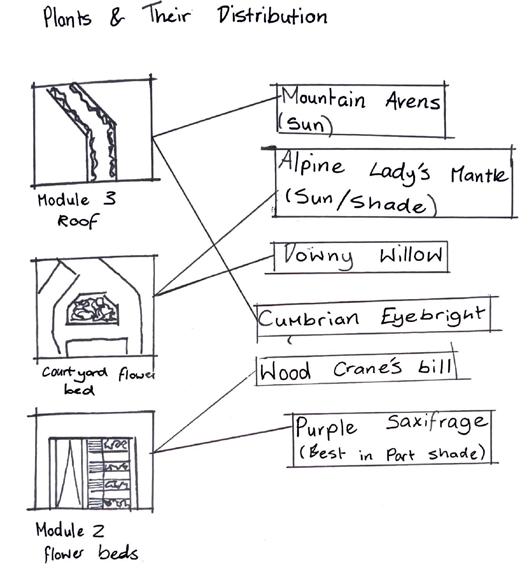 Plants & Their Distribution
Module 3
Roof
Courtyard flower
bed
Module 2
flower beds
Mountain Avens
(Sun)
Alpine Lady's Mantle
(Sun/Shade)
Downy Willow
Cumbrian Eyebright
Wood Crane's bill
Purple Saxifrage
(Best in Part shade)